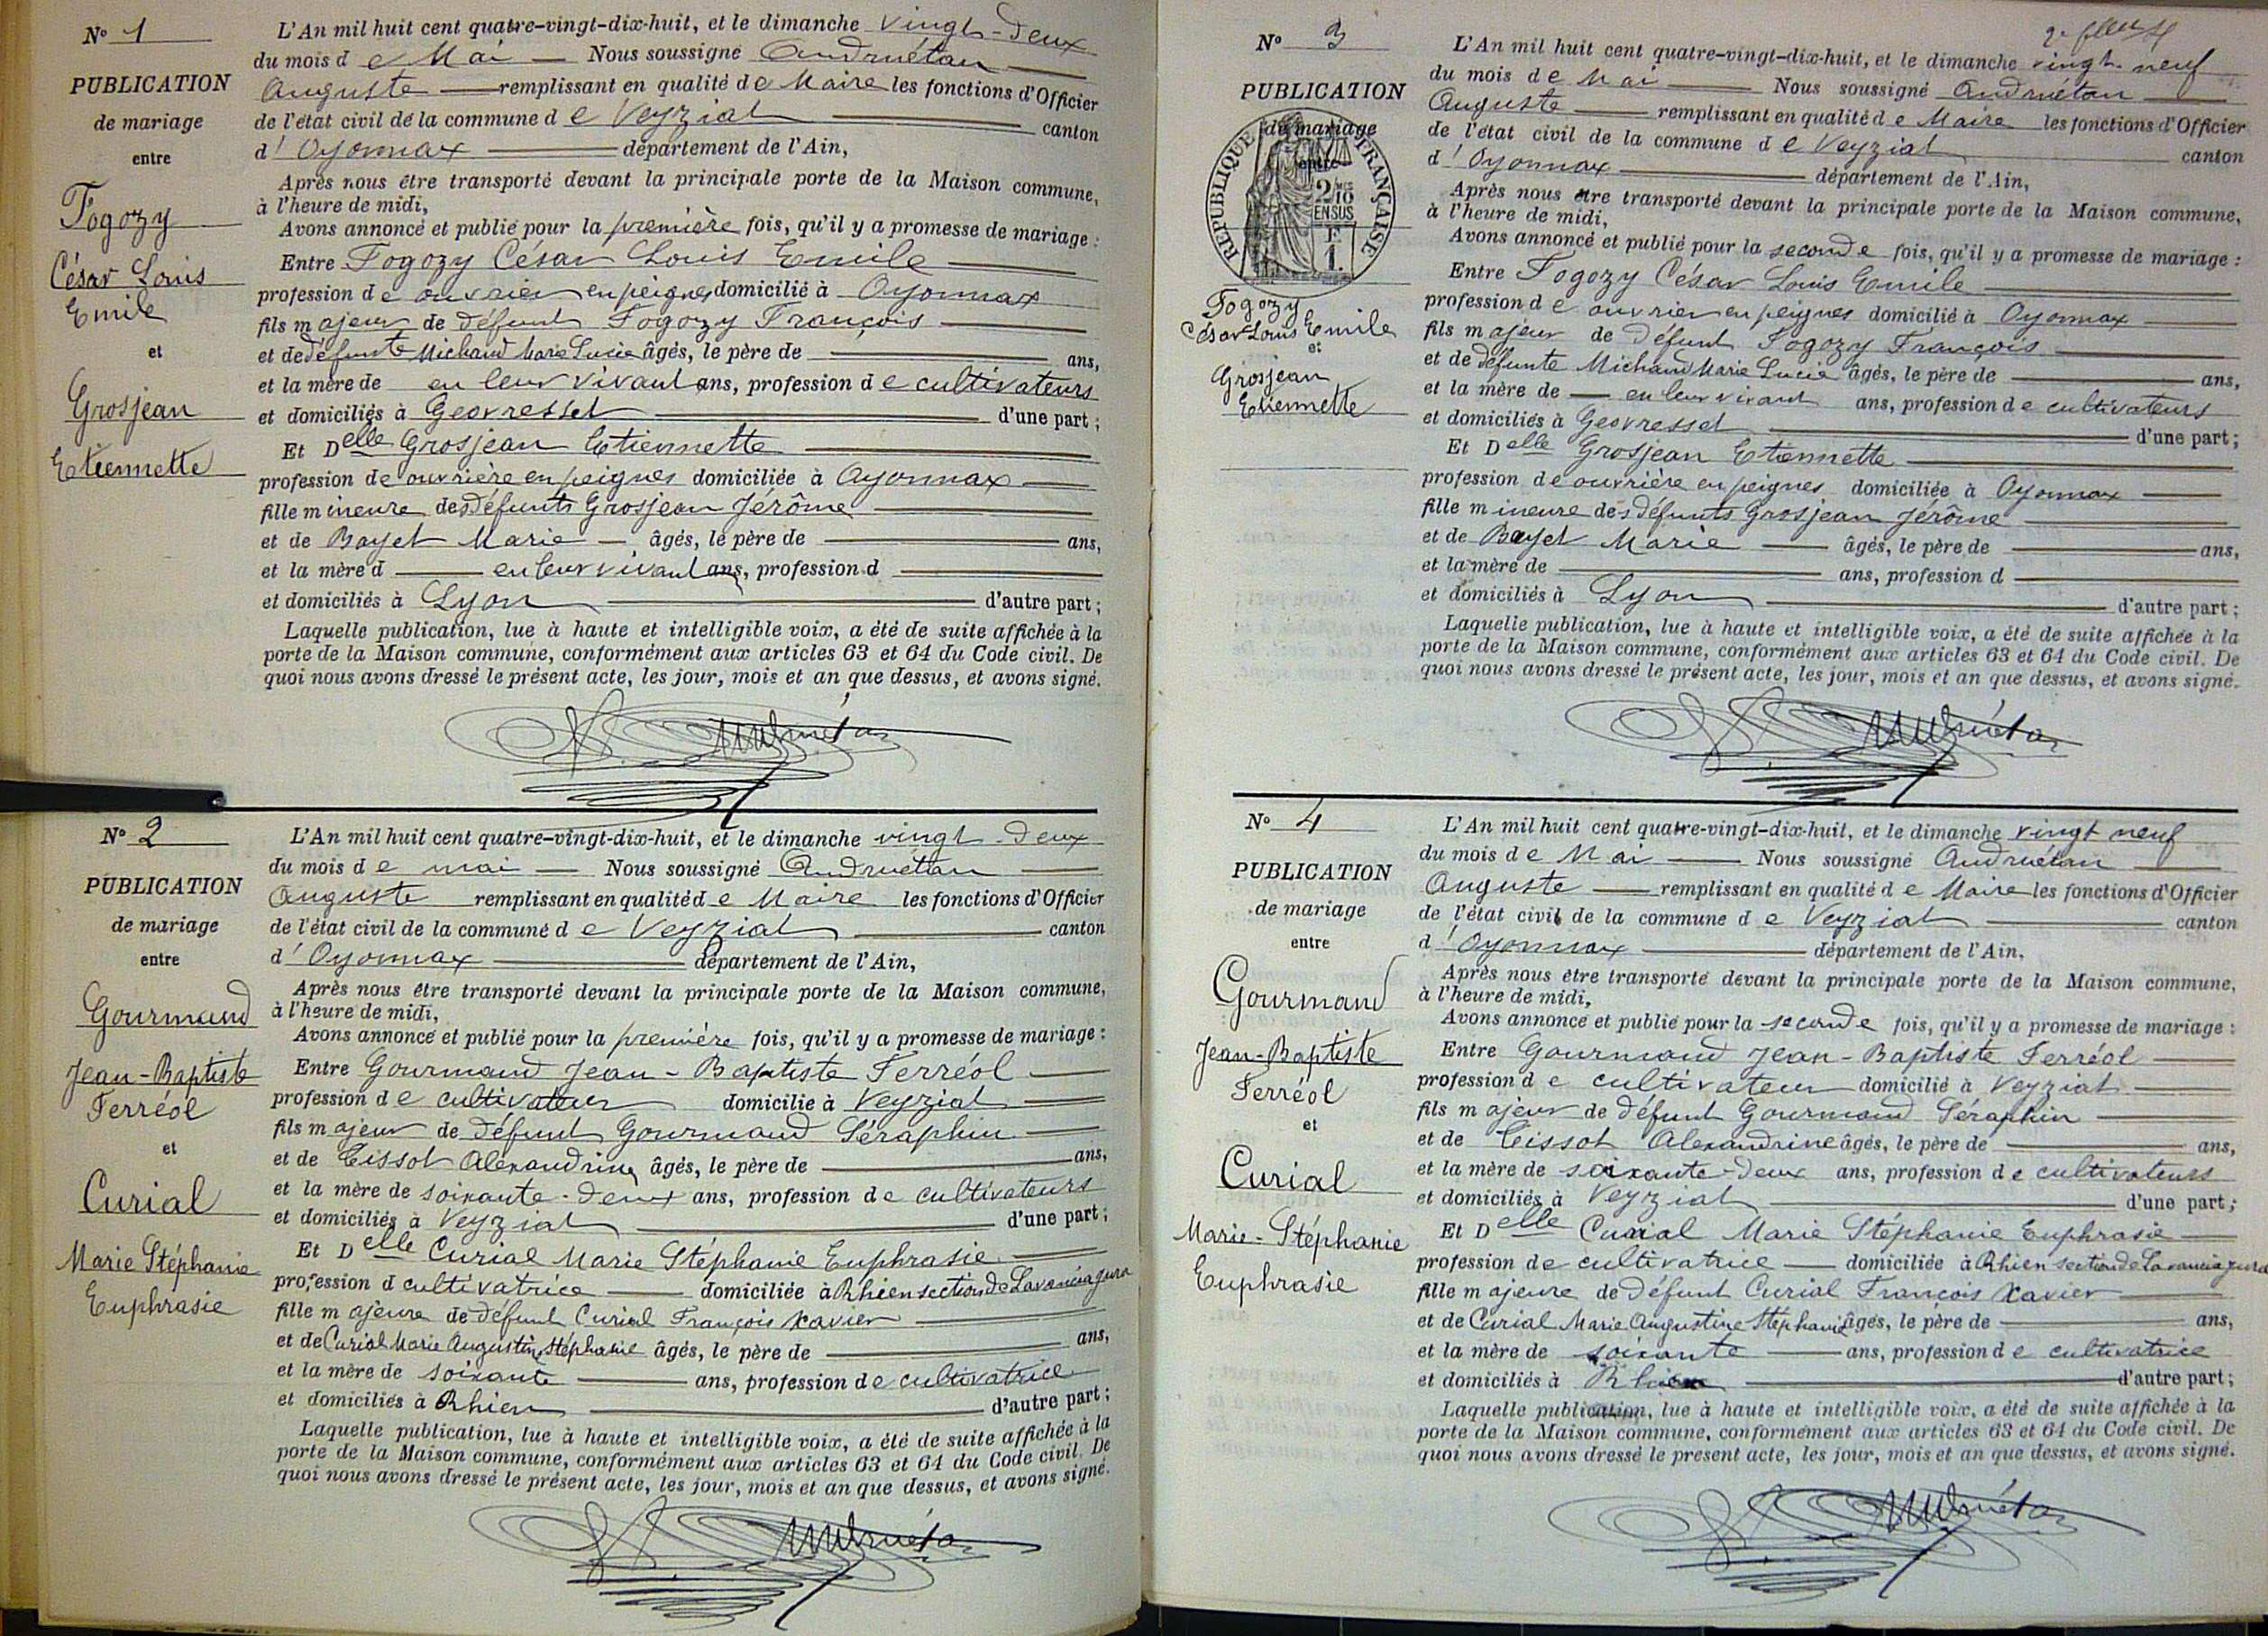 N° 1
PUBLICATION
de mariage
entre
Fogozy
César Louis
Emile
et
Grosjean
Etiennette
L'An mil huit cent quatre-vingt-dix-huit, et le dimanche vingt-deux
du mois de Mai — Nous soussigné Andruétan
Auguste — remplissant en qualité de Maire les fonctions d'Officier
de l'état civil de la commune de Veyziat canton
d'Oyonnax département de l'Ain,
Après nous être transporté devant la principale porte de la Maison commune,
à l'heure de midi,
Avons annoncé et publié pour la première fois, qu'il y a promesse de mariage :
Entre Fogozy César Louis Emile
profession de ouvrier en peignes domicilié à Oyonnax
fils majeur de défunt Fogozy François
et de défunte Michaud Marie Lucie âgés, le père de — ans,
et la mère de en leur vivant ans, profession de cultivateurs
et domiciliés à Geovresset d'une part ;
Et Delle Grosjean Etiennette
profession de ouvrière en peignes domiciliée à Oyonnax
fille mineure des défunts Grosjean Jérôme
et de Bayet Marie — âgés, le père de — ans,
et la mère d — en leur vivant ans, profession d —
et domiciliés à Lyon d'autre part ;
Laquelle publication, lue à haute et intelligible voix, a été de suite affichée à la
porte de la Maison commune, conformément aux articles 63 et 64 du Code civil. De
quoi nous avons dressé le présent acte, les jour, mois et an que dessus, et avons signé.
Andruétan
N° 2
PUBLICATION
de mariage
entre
Gourmand
Jean-Baptiste
Ferréol
et
Curial
Marie Stéphanie
Euphrasie
L'An mil huit cent quatre-vingt-dix-huit, et le dimanche vingt-deux
du mois de mai — Nous soussigné Andruétan
Auguste remplissant en qualité de Maire les fonctions d'Officier
de l'état civil de la commune de Veyziat canton
d'Oyonnax département de l'Ain,
Après nous être transporté devant la principale porte de la Maison commune,
à l'heure de midi,
Avons annoncé et publié pour la première fois, qu'il y a promesse de mariage :
Entre Gourmand Jean-Baptiste Ferréol
profession de cultivateur domicilié à Veyziat
fils majeur de défunt Gourmand Séraphin
et de Tissot Alexandrine âgés, le père de — ans,
et la mère de soixante-deux ans, profession de cultivateurs
et domiciliés à Veyziat d'une part ;
Et Delle Curial Marie Stéphanie Euphrasie
profession d cultivatrice — domiciliée à Rhien section de Lavancia Jura
fille majeure de défunt Curial François Xavier
et de Curial Marie Augustine Stéphanie âgés, le père de — ans,
et la mère de soixante — ans, profession de cultivatrice
et domiciliés à Rhien d'autre part ;
Laquelle publication, lue à haute et intelligible voix, a été de suite affichée à la
porte de la Maison commune, conformément aux articles 63 et 64 du Code civil. De
quoi nous avons dressé le présent acte, les jour, mois et an que dessus, et avons signé.
Andruétan
2e feuillet
N° 3
PUBLICATION
de mariage
entre
RÉPUBLIQUE FRANÇAISE
2/10
EN SUS
F
1.
Fogozy
César Louis Emile
et
Grosjean
Etiennette
L'An mil huit cent quatre-vingt-dix-huit, et le dimanche vingt-neuf
du mois de Mai — Nous soussigné Andruétan
Auguste — remplissant en qualité de Maire les fonctions d'Officier
de l'état civil de la commune de Veyziat canton
d'Oyonnax département de l'Ain,
Après nous être transporté devant la principale porte de la Maison commune,
à l'heure de midi,
Avons annoncé et publié pour la seconde fois, qu'il y a promesse de mariage :
Entre Fogozy César Louis Emile
profession de ouvrier en peignes domicilié à Oyonnax
fils majeur de défunt Fogozy François
et de défunte Michaud Marie Lucie âgés, le père de — ans,
et la mère de — en leur vivant ans, profession de cultivateurs
et domiciliés à Geovresset d'une part ;
Et Delle Grosjean Etiennette
profession de ouvrière en peignes domiciliée à Oyonnax
fille mineure des défunts Grosjean Jérôme
et de Bayet Marie — âgés, le père de — ans,
et la mère de — ans, profession d —
et domiciliés à Lyon d'autre part ;
Laquelle publication, lue à haute et intelligible voix, a été de suite affichée à la
porte de la Maison commune, conformément aux articles 63 et 64 du Code civil. De
quoi nous avons dressé le présent acte, les jour, mois et an que dessus, et avons signé.
Andruétan
N° 4
PUBLICATION
de mariage
entre
Gourmand
Jean-Baptiste
Ferréol
et
Curial
Marie-Stéphanie
Euphrasie
L'An mil huit cent quatre-vingt-dix-huit, et le dimanche vingt neuf
du mois de Mai — Nous soussigné Andruétan
Auguste — remplissant en qualité de Maire les fonctions d'Officier
de l'état civil de la commune de Veyziat canton
d'Oyonnax département de l'Ain,
Après nous être transporté devant la principale porte de la Maison commune,
à l'heure de midi,
Avons annoncé et publié pour la seconde fois, qu'il y a promesse de mariage :
Entre Gourmand Jean-Baptiste Ferréol
profession de cultivateur domicilié à Veyziat
fils majeur de défunt Gourmand Séraphin
et de Tissot Alexandrine âgés, le père de — ans,
et la mère de soixante-deux ans, profession de cultivateurs
et domiciliés à Veyziat d'une part ;
Et Delle Curial Marie Stéphanie Euphrasie
profession de cultivatrice — domiciliée à Rhien section de Lavancia Jura
fille majeure de défunt Curial François Xavier
et de Curial Marie Augustine Stéphanie âgés, le père de — ans,
et la mère de soixante — ans, profession de cultivatrice
et domiciliés à Rhien d'autre part ;
Laquelle publication, lue à haute et intelligible voix, a été de suite affichée à la
porte de la Maison commune, conformément aux articles 63 et 64 du Code civil. De
quoi nous avons dressé le présent acte, les jour, mois et an que dessus, et avons signé.
Andruétan